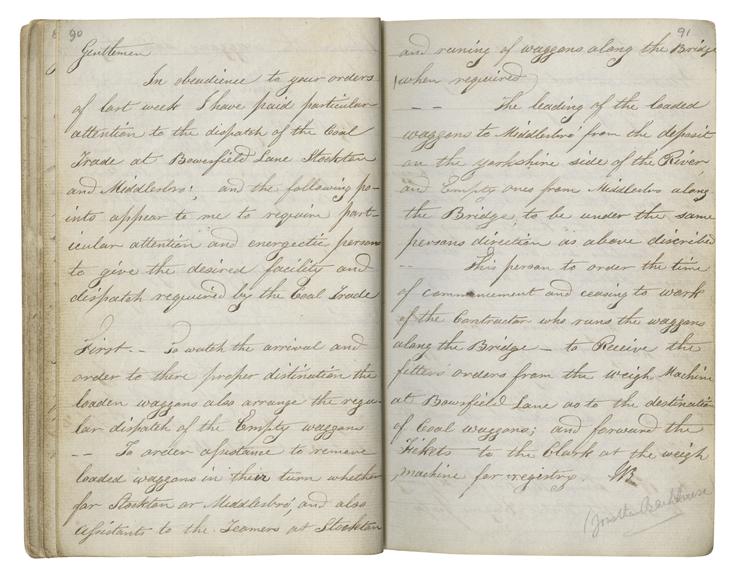 90
Gentlemen
In obeadience to your orders
of last week I have paid particular
attention to the dispatch of the Coal
Trade at Bowesfield Lane Stockton
and Middlesbro'; and the following po-
ints appear to me to requiere part-
icular attention and energectic persons
to give the desired facility and
dispatch requiered by the Coal Trade
First. - To watch the arrival and
order to there proper distination the
loaden waggons also arrange the regu-
lar dispatch of the Empty waggons
-- To order assistance to remove
loaded waggons in their turn whether
for Stockton or Middlesbro', and also
assistants to the Teamers at Stockton
91
and runing of waggons along the Bridge
when required
-- The leading of the loaded
waggons to Middlesbro' from the deposit
on the yorkshire side of the River
and Empty ones from Middlesbro along
the Bridge, to be under the same
persons direction as above discribed
-- This person to order the time
of commencement and ceasing to work
of the Contractor who runs the waggons
along the Bridge - to Receive the
fitters orders from the weigh Machine
at Bowesfield Lane as to the destination
of Coal waggons; and forward the
Tickets to the Clark at the weigh
machine for registry. JB
(Jonathan Backhouse